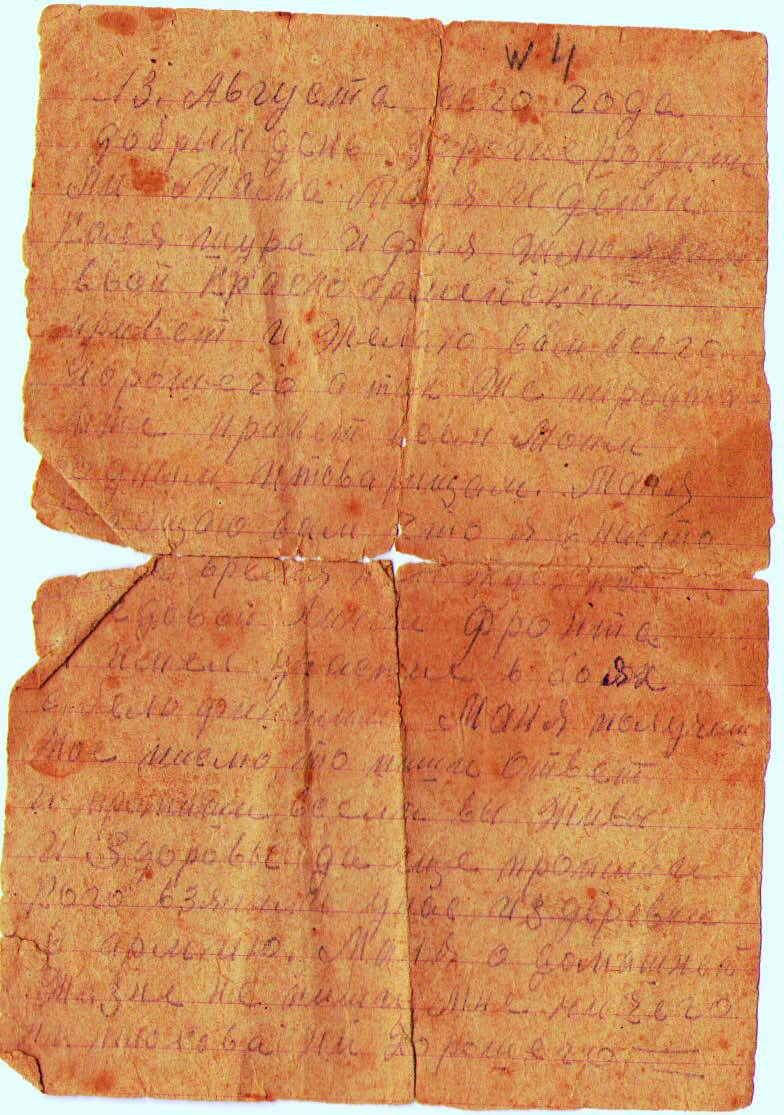 W 4
13. Августа сего года
добрый день дорогие родите
ли Мама Маня и дети
Коля шура и фрая шлю я вам
свой Красно армейский
привет и желаю вам всего
хорошего а так же передай-
те привет всем Моим
родным и товарищам. Маня
сообщаю вам что я в насто
время
довой линии фронта
и имел участие в боях
с бело финнами. Маня получиш
мое писмо, то пиши ответ
и пропиши все ли вы живы
и Здоровы да еще пропиши
кого взяли и унас из деревни
в армию. Маня о домашней
Жизне не пиши мне ни чего
ни плохова ни хорошего